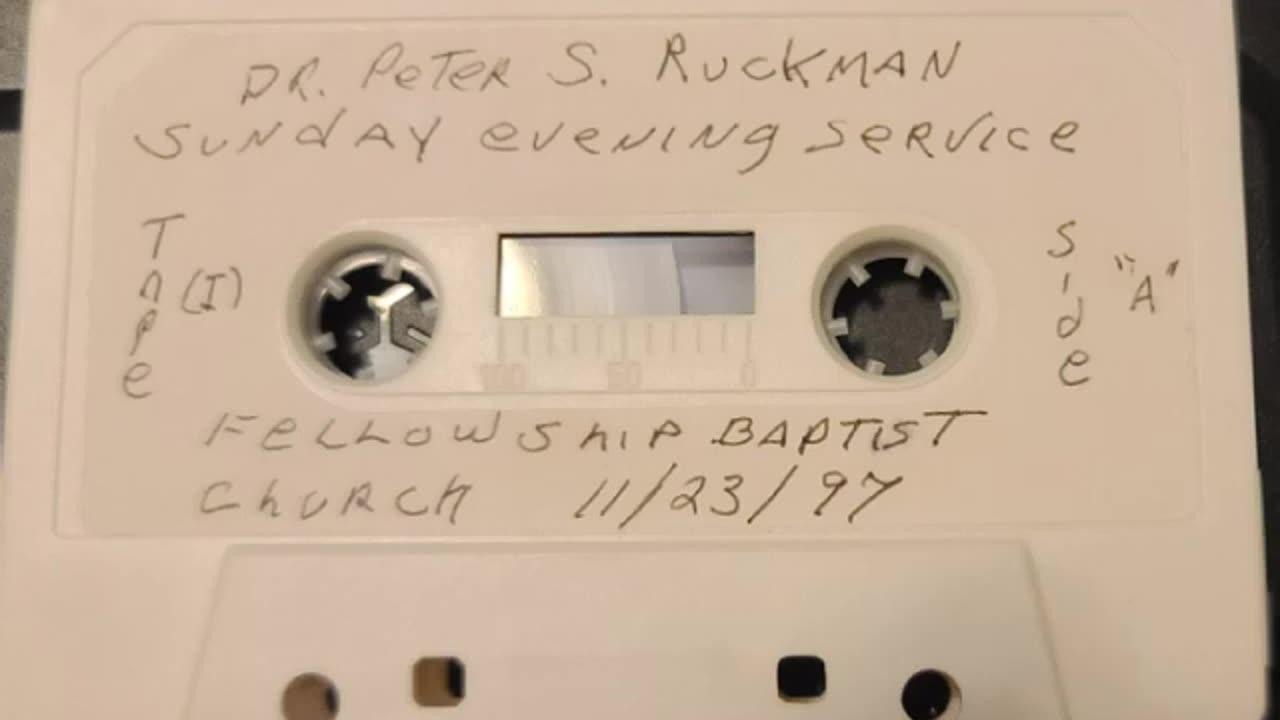 DR. PETER S. RUCKMAN
SUNDAY EVENING SERVICE
Tape (I)
Side "A"
100 50 0
FELLOWSHIP BAPTIST
CHURCH 11/23/97